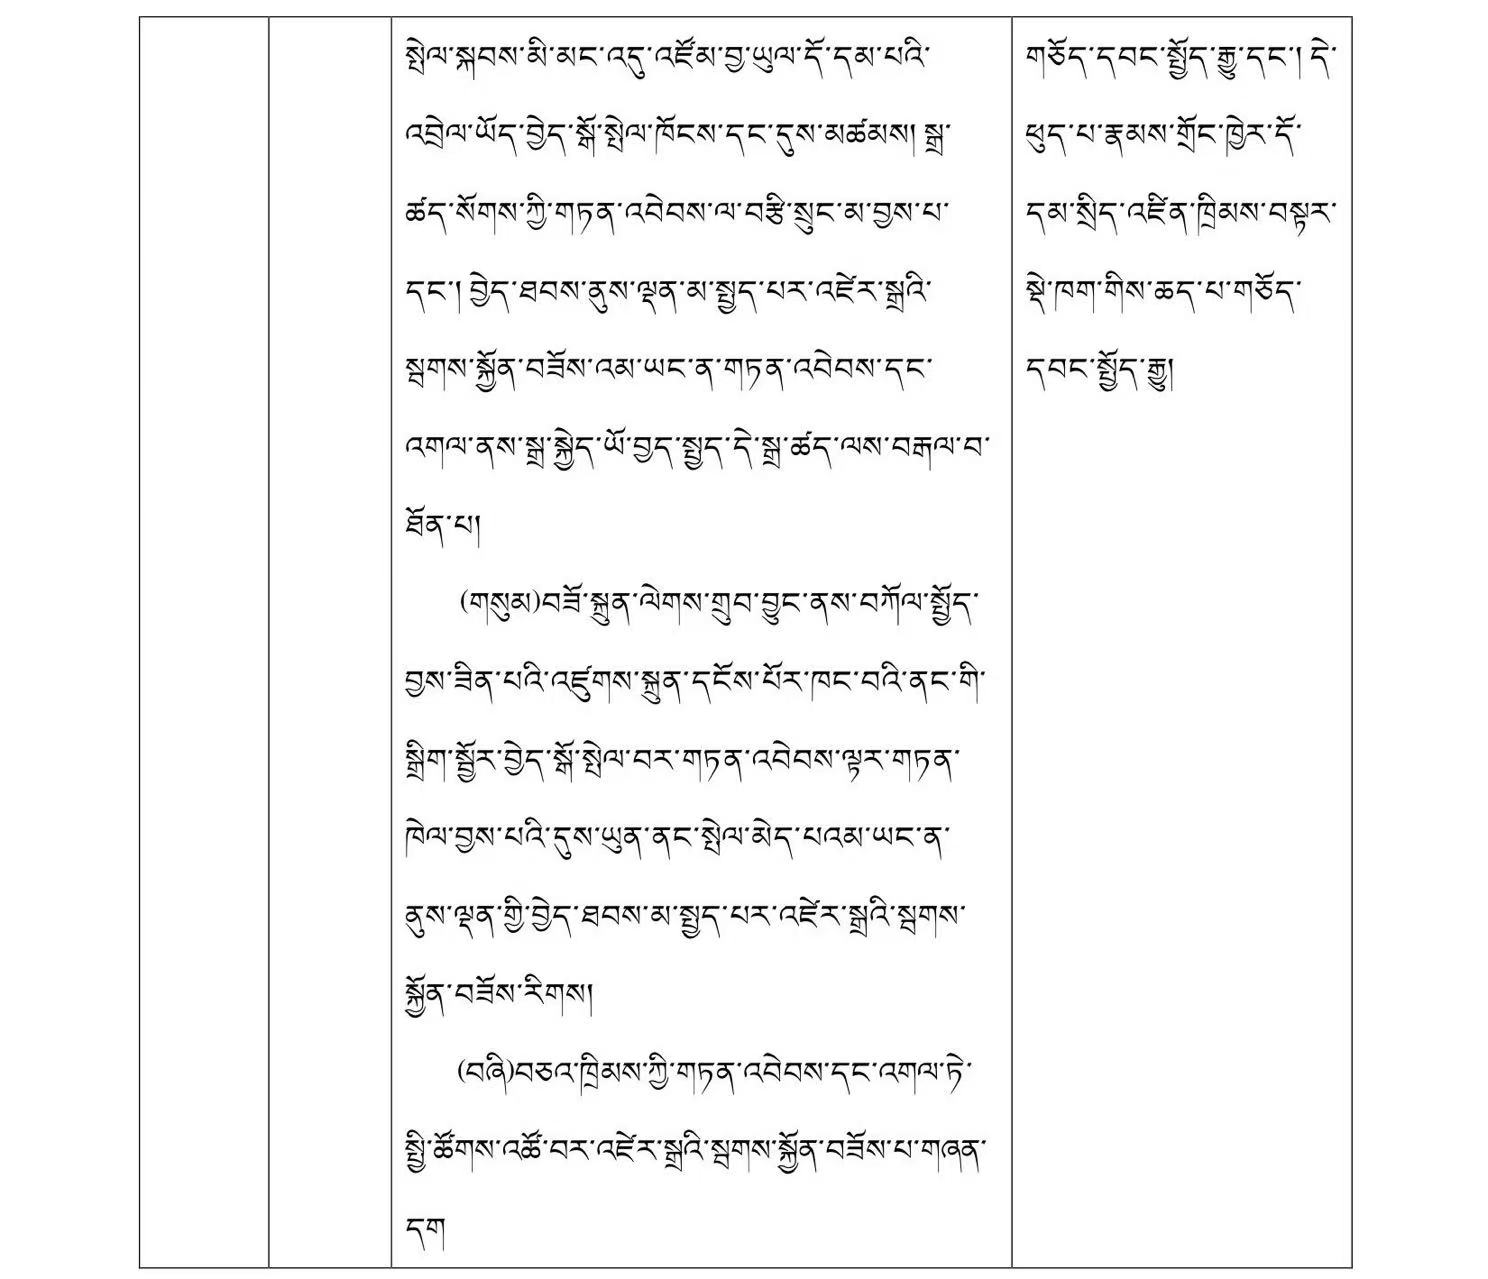 སྤེལ་སྐབས་མི་མང་འདུ་འཛོམ་བྱ་ཡུལ་དོ་དམ་པའི་
འབྲེལ་ཡོད་བྱེད་སྒོ་སྤེལ་ཁོངས་དང་དུས་མཚམས། སྒྲ་
ཚད་སོགས་ཀྱི་གཏན་འབེབས་ལ་བརྩི་སྲུང་མ་བྱས་པ་
དང་། བྱེད་ཐབས་ནུས་ལྡན་མ་སྤྱད་པར་འཛེར་སྒྲའི་
སྦགས་སྐྱོན་བཟོས་འམ་ཡང་ན་གཏན་འབེབས་དང་
འགལ་ནས་སྒྲ་སྐྱེད་ཡོ་བྱད་སྤྱད་དེ་སྒྲ་ཚད་ལས་བརྒལ་བ་
ཐོན་པ།
(གསུམ)བཟོ་སྐྲུན་ལེགས་གྲུབ་བྱུང་ནས་བཀོལ་སྤྱོད་
བྱས་ཟིན་པའི་འཛུགས་སྐྲུན་དངོས་པོར་ཁང་བའི་ནང་གི་
སྒྲིག་སྦྱོར་བྱེད་སྒོ་སྤེལ་བར་གཏན་འབེབས་ལྟར་གཏན་
ཁེལ་བྱས་པའི་དུས་ཡུན་ནང་སྤེལ་མེད་པའམ་ཡང་ན་
ནུས་ལྡན་གྱི་བྱེད་ཐབས་མ་སྤྱད་པར་འཛེར་སྒྲའི་སྦགས་
སྐྱོན་བཟོས་རིགས།
(བཞི)བཅའ་ཁྲིམས་ཀྱི་གཏན་འབེབས་དང་འགལ་ཏེ་
སྤྱི་ཚོགས་འཚོ་བར་འཛེར་སྒྲའི་སྦགས་སྐྱོན་བཟོས་པ་གཞན་
དག
གཅོད་དབང་སྤྱོད་རྒྱུ་དང་། དེ་
ཕུད་པ་རྣམས་གྲོང་ཁྱེར་དོ་
དམ་སྲིད་འཛིན་ཁྲིམས་བསྟར་
སྡེ་ཁག་གིས་ཆད་པ་གཅོད་
དབང་སྤྱོད་རྒྱུ།